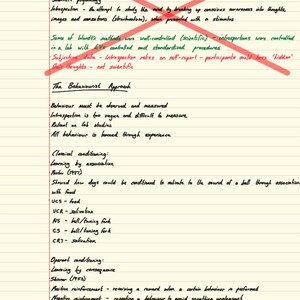 Introspection - the attempt to study the mind by breaking up conscious awareness into thoughts,
images and sensations (structuralism), when presented with a stimulus
Some of Wundt's methods were well-controlled (scientific) - introspections were controlled
in a lab with controlled and standardised procedures
Subjective data - introspection relies on self-report - participants could have 'hidden'
thoughts - not scientific
The Behaviourist Approach
Behaviour must be observed and measured
Introspection is too vague and difficult to measure
Relied on lab studies
All behaviour is learned through experience
Classical conditioning:
Learning by association
Pavlov (1927)
Showed how dogs could be conditioned to salivate to the sound of a bell through association
with food
UCS - food
UCR - salivation
NS - bell/tuning fork
CS - bell/tuning fork
CR - salivation
Operant conditioning:
Learning by consequence
Skinner (1953)
Positive reinforcement - receiving a reward when a certain behaviour is performed
Negative reinforcement - repeating a behaviour to avoid something unpleasant